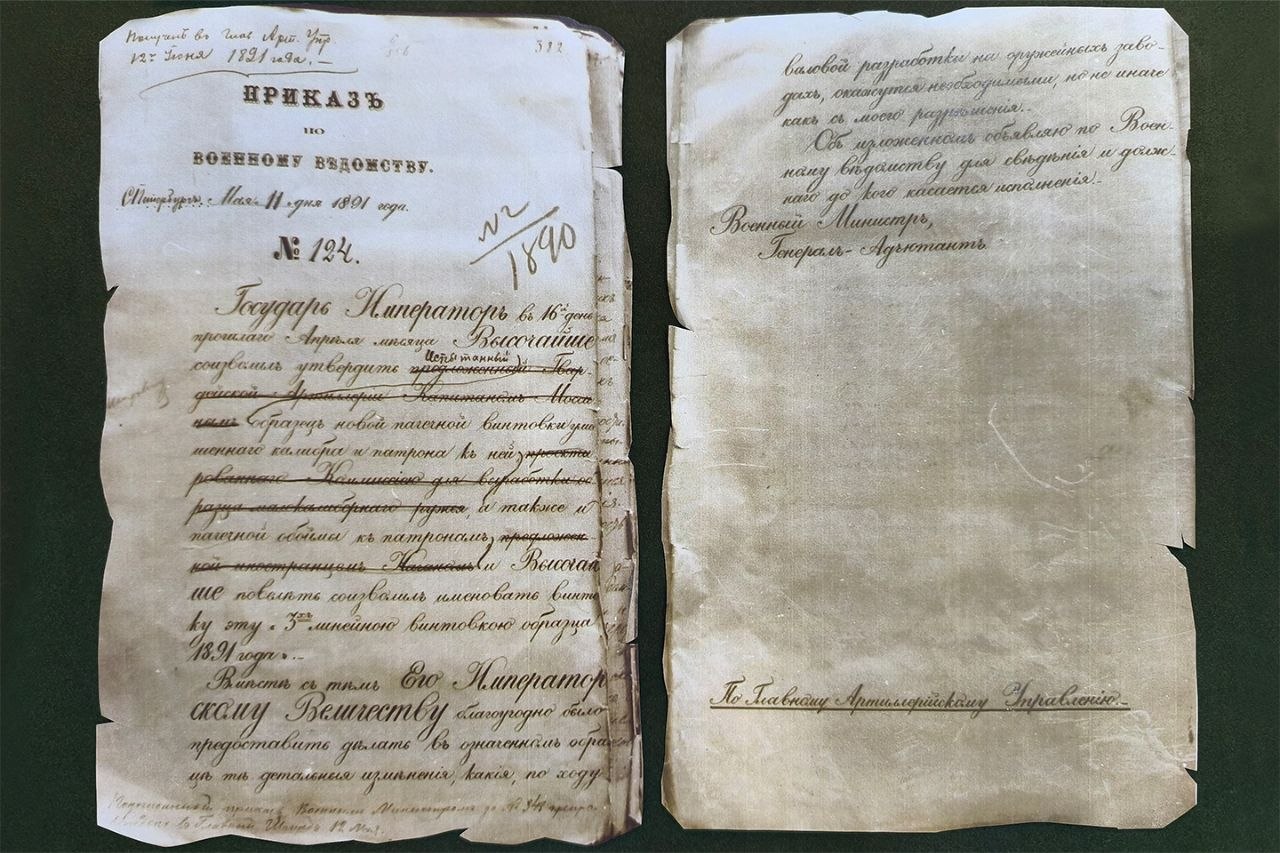 Полученъ въ Глав. Арт. Упр.
12го Іюня 1891 года. —
312
ПРИКАЗЪ
ПО
ВОЕННОМУ ВѢДОМСТВУ.
С.Петербургъ. Мая 11 дня 1891 года.
№ 124.
№ 2/1890
Государь Императоръ въ 16й день
прошлаго Апрѣля мѣсяца Высочайше
Испытанный
соизволилъ утвердить предложенный Гвар-
дейской Артиллеріи Капитаномъ Моси-
нымъ образецъ новой пачечной винтовки умен
шеннаго калибра и патрона къ ней, проекти
рованнаго Коммиссіею для выработки об
разца малокалибернаго ружья, а также и
пачечной обоймы къ патронамъ, предложен-
ной иностранцемъ Наганомъ и Высочай
ше повелѣть соизволилъ именовать винтов
ку эту „3хъ линейною винтовкою образца
1891 года“. —
Вмѣстѣ съ тѣмъ Его Император
скому Величеству благоугодно было
предоставить дѣлать въ означенномъ образ
цѣ тѣ детальныя измѣненія, какія, по ходу
Подписанный приказъ Военнымъ Министромъ за № 948 препро-
вожденъ въ Главный Штабъ 12 Мая.
валовой разработки на оружейныхъ заво-
дахъ, окажутся необходимыми, но не иначе
какъ съ моего разрѣшенія. —
Объ изложенномъ объявляю по Воен-
ному вѣдомству для свѣдѣнія и долж-
наго до кого касается исполненія. —
Военный Министръ,
Генералъ-Адъютантъ
По Главному Артиллерійскому Управленію. —